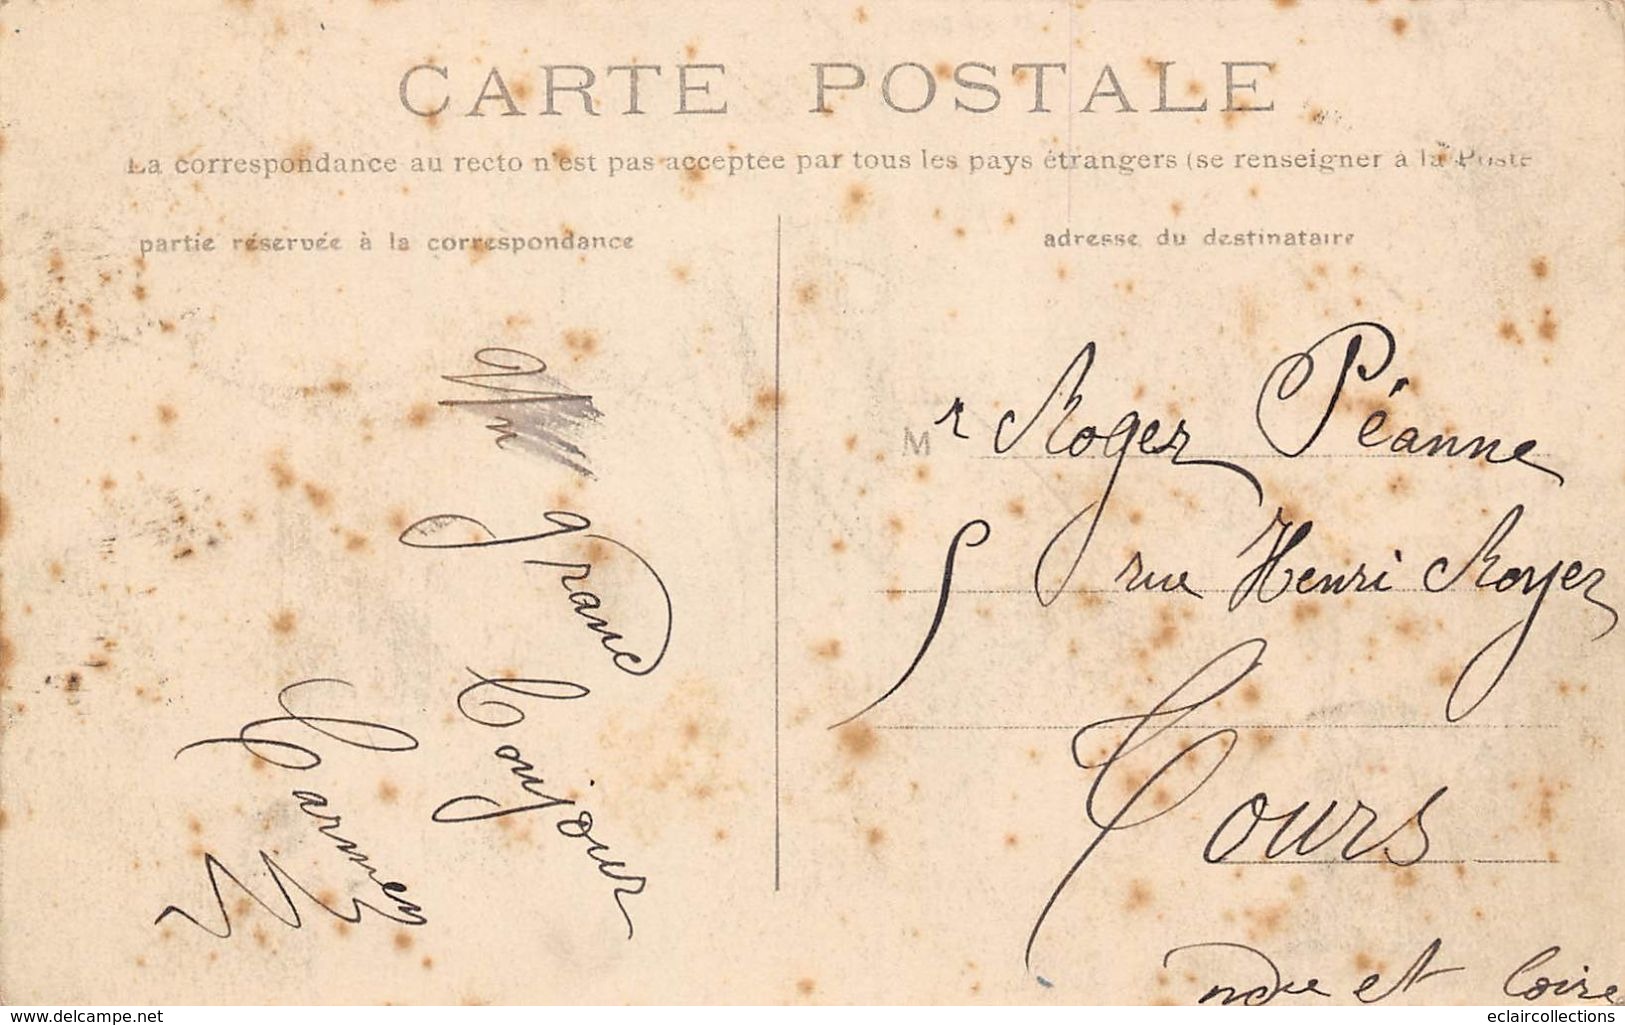 CARTE POSTALE
La correspondance au recto n'est pas acceptée par tous les pays étrangers (se renseigner à la Poste
partie réservée à la correspondance
adresse du destinataire
Un grand
Toujour
Carmen
Mr Roger Péanne
5 rue Henri Royer
Tours
Indre et Loire
www.delcampe.net
eclaircollections